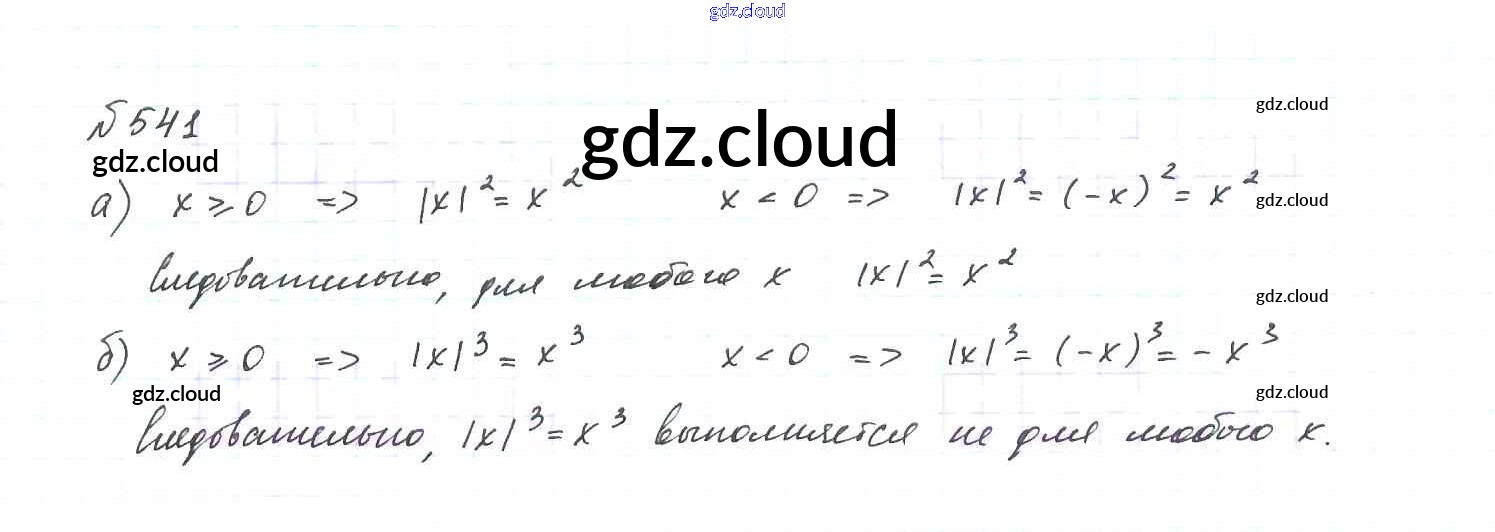 gdz.cloud
№541
gdz.cloud
gdz.cloud
gdz.cloud
а) x ⩾ 0 => |x|² = x² x < 0 => |x|² = (-x)² = x²
gdz.cloud
Следовательно, для любого x |x|² = x²
gdz.cloud
б) x ⩾ 0 => |x|³ = x³ x < 0 => |x|³ = (-x)³ = -x³
gdz.cloud
gdz.cloud
Следовательно, |x|³ = x³ выполняется не для любого x.